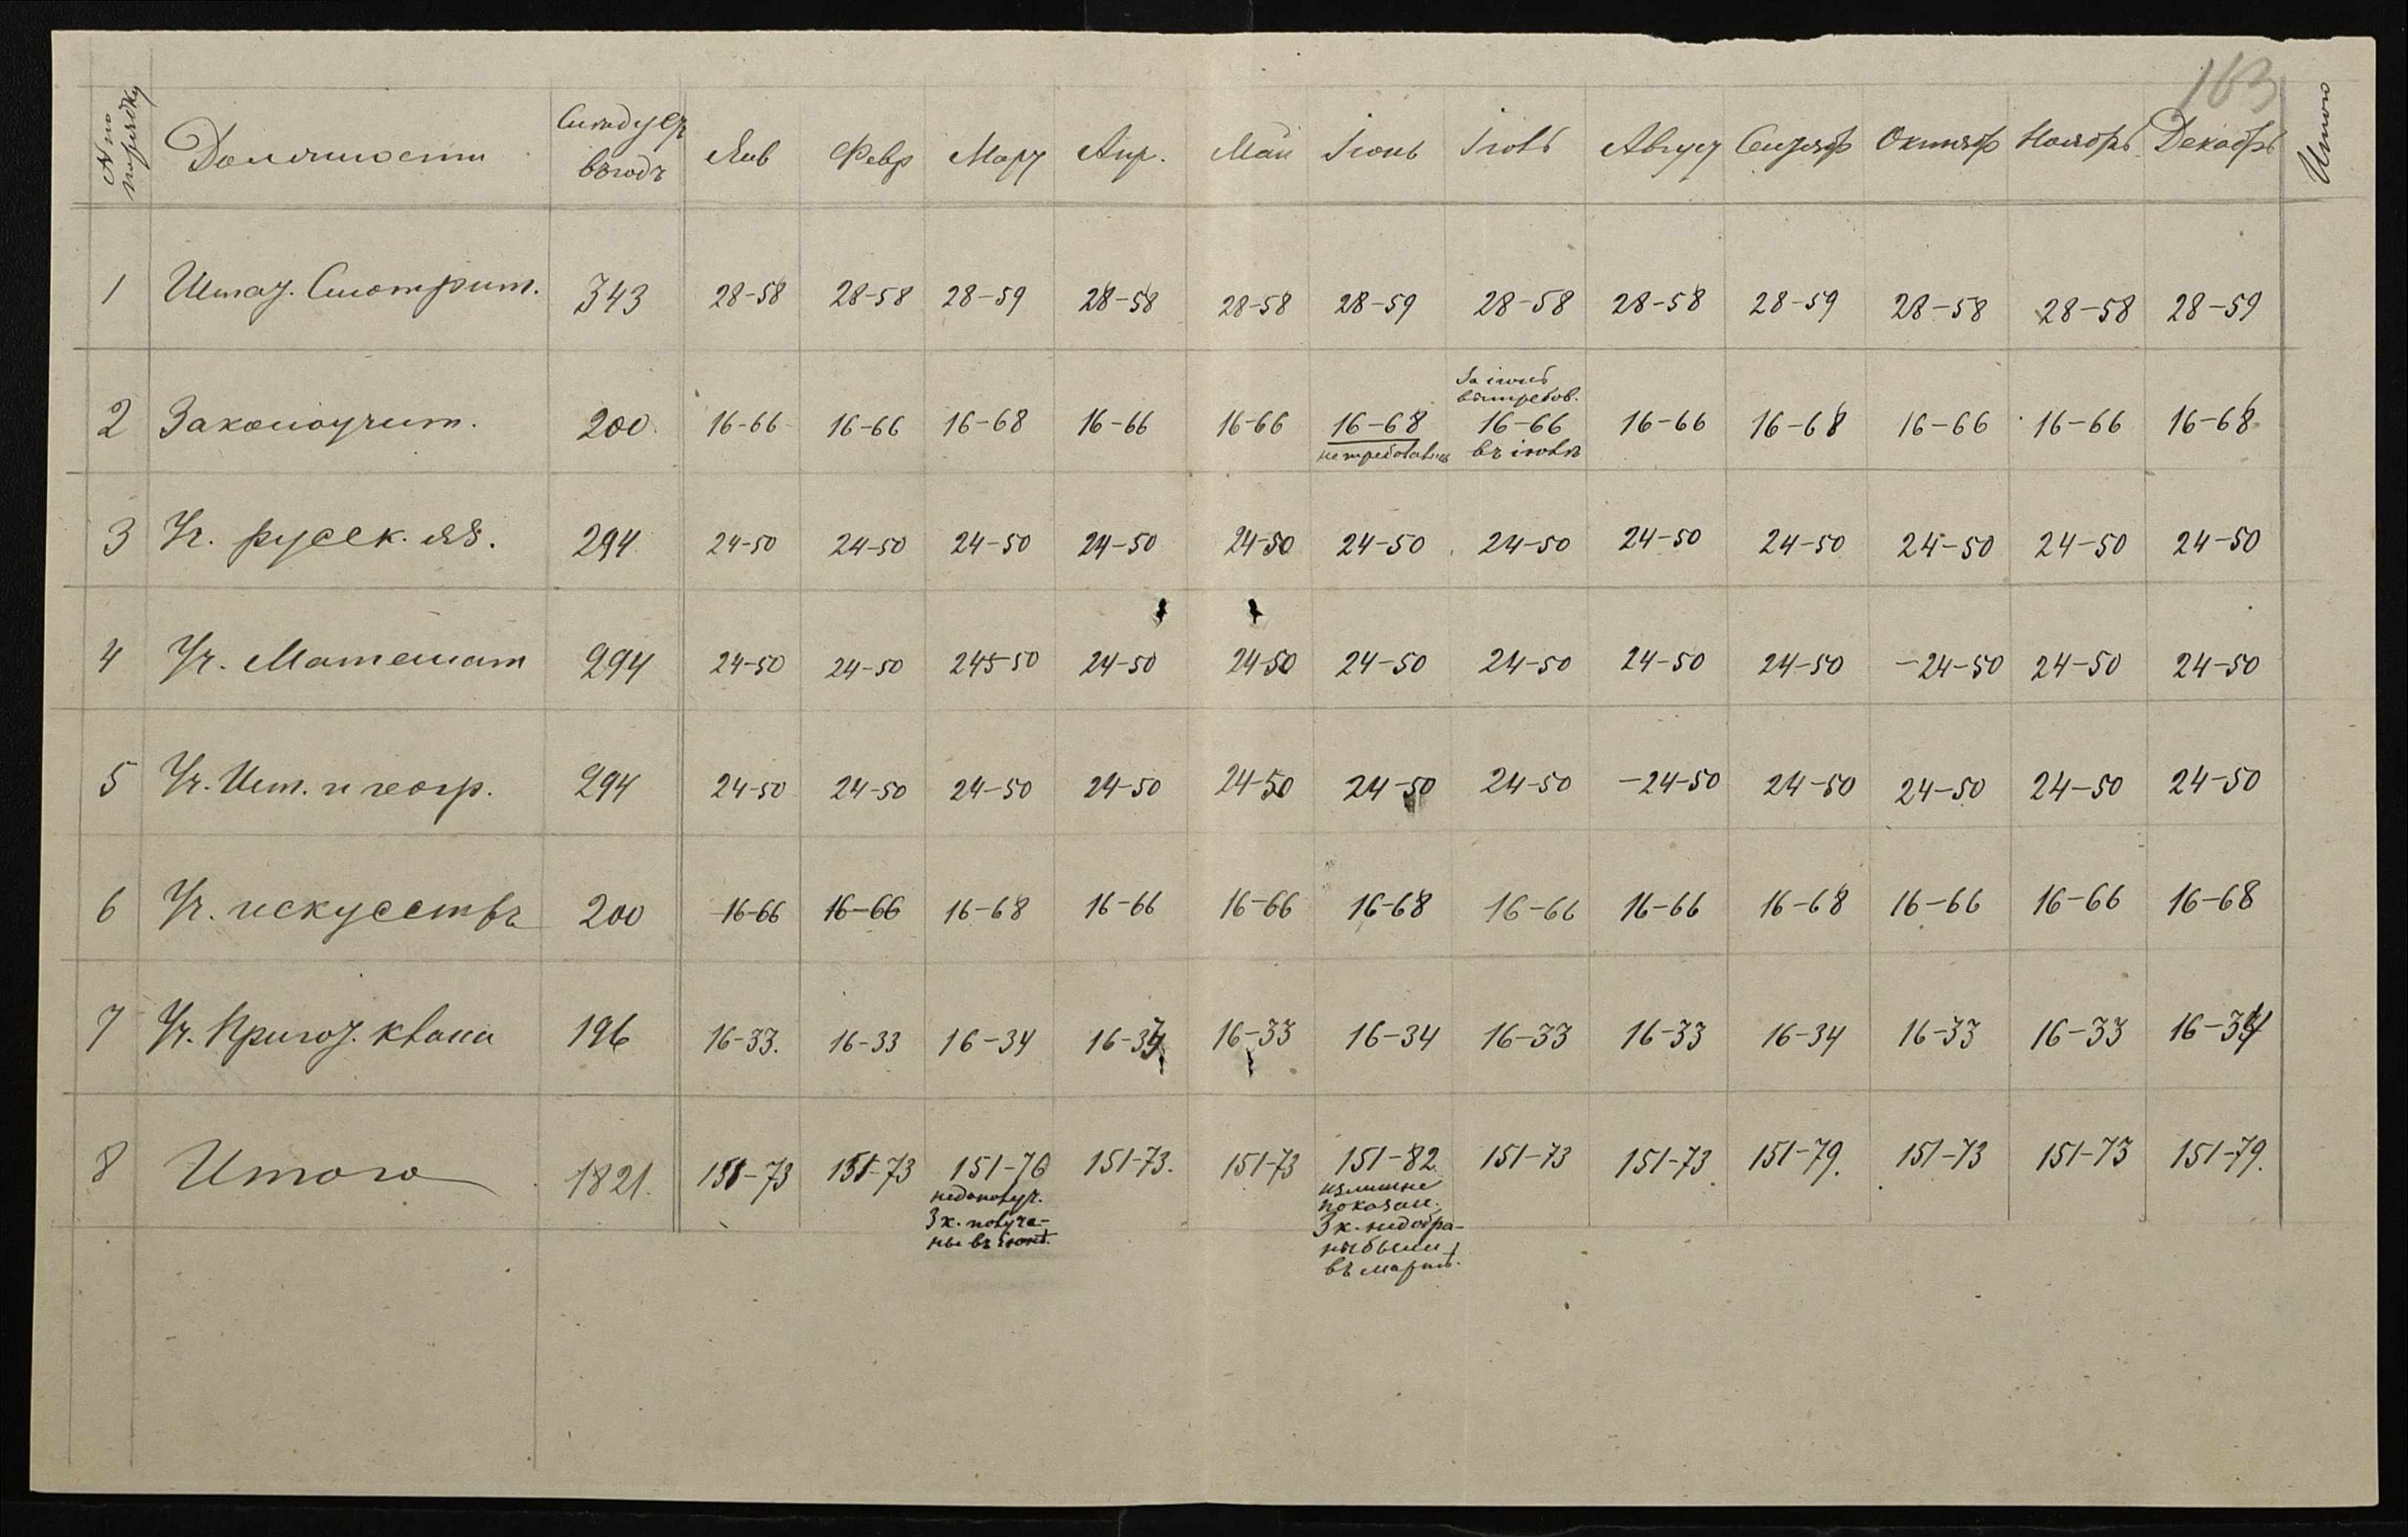 163
№ по порядку Должности Слѣдуетъ въ годъ Янв Февр Март Апр. Май Іюнь Іюль Август Сентябр Октябр Ноябрь Декабрь Итого
1 Штат. Смотрит. 343 28-58 28-58 28-59 28-58 28-58 28-59 28-58 28-58 28-59 28-58 28-58 28-59
За іюнь
вытребов.
2 Законоучит. 200 16-66 16-66 16-68 16-66 16-66 16-68 16-66 16-66 16-68 16-66 16-66 16-68
не требовались въ іюлѣ
3 Уч. русск. яз. 294 24-50 24-50 24-50 24-50 24-50 24-50 24-50 24-50 24-50 24-50 24-50 24-50
4 Уч. Математ 294 24-50 24-50 245-50 24-50 24-50 24-50 24-50 24-50 24-50 -24-50 24-50 24-50
5 Уч. Ист. и геогр. 294 24-50 24-50 24-50 24-50 24-50 24-50 24-50 -24-50 24-50 24-50 24-50 24-50
6 Уч. искусствъ 200 16-66 16-66 16-68 16-66 16-66 16-68 16-66 16-66 16-68 16-66 16-66 16-68
7 Уч. Пригот. класса 196 16-33. 16-33 16-34 16-33 16-33 16-34 16-33 16-33 16-34 16-33 16-33 16-34
8 Итого 1821. 151-73 151-73 151-76 151-73. 151-73 151-82 151-73 151-73 151-79. 151-73 151-73 151-79.
недополуч.
3 к. получе-
ны въ іюнѣ.
излишне
показан.
3 к. недобра-
ны были
въ мартѣ.